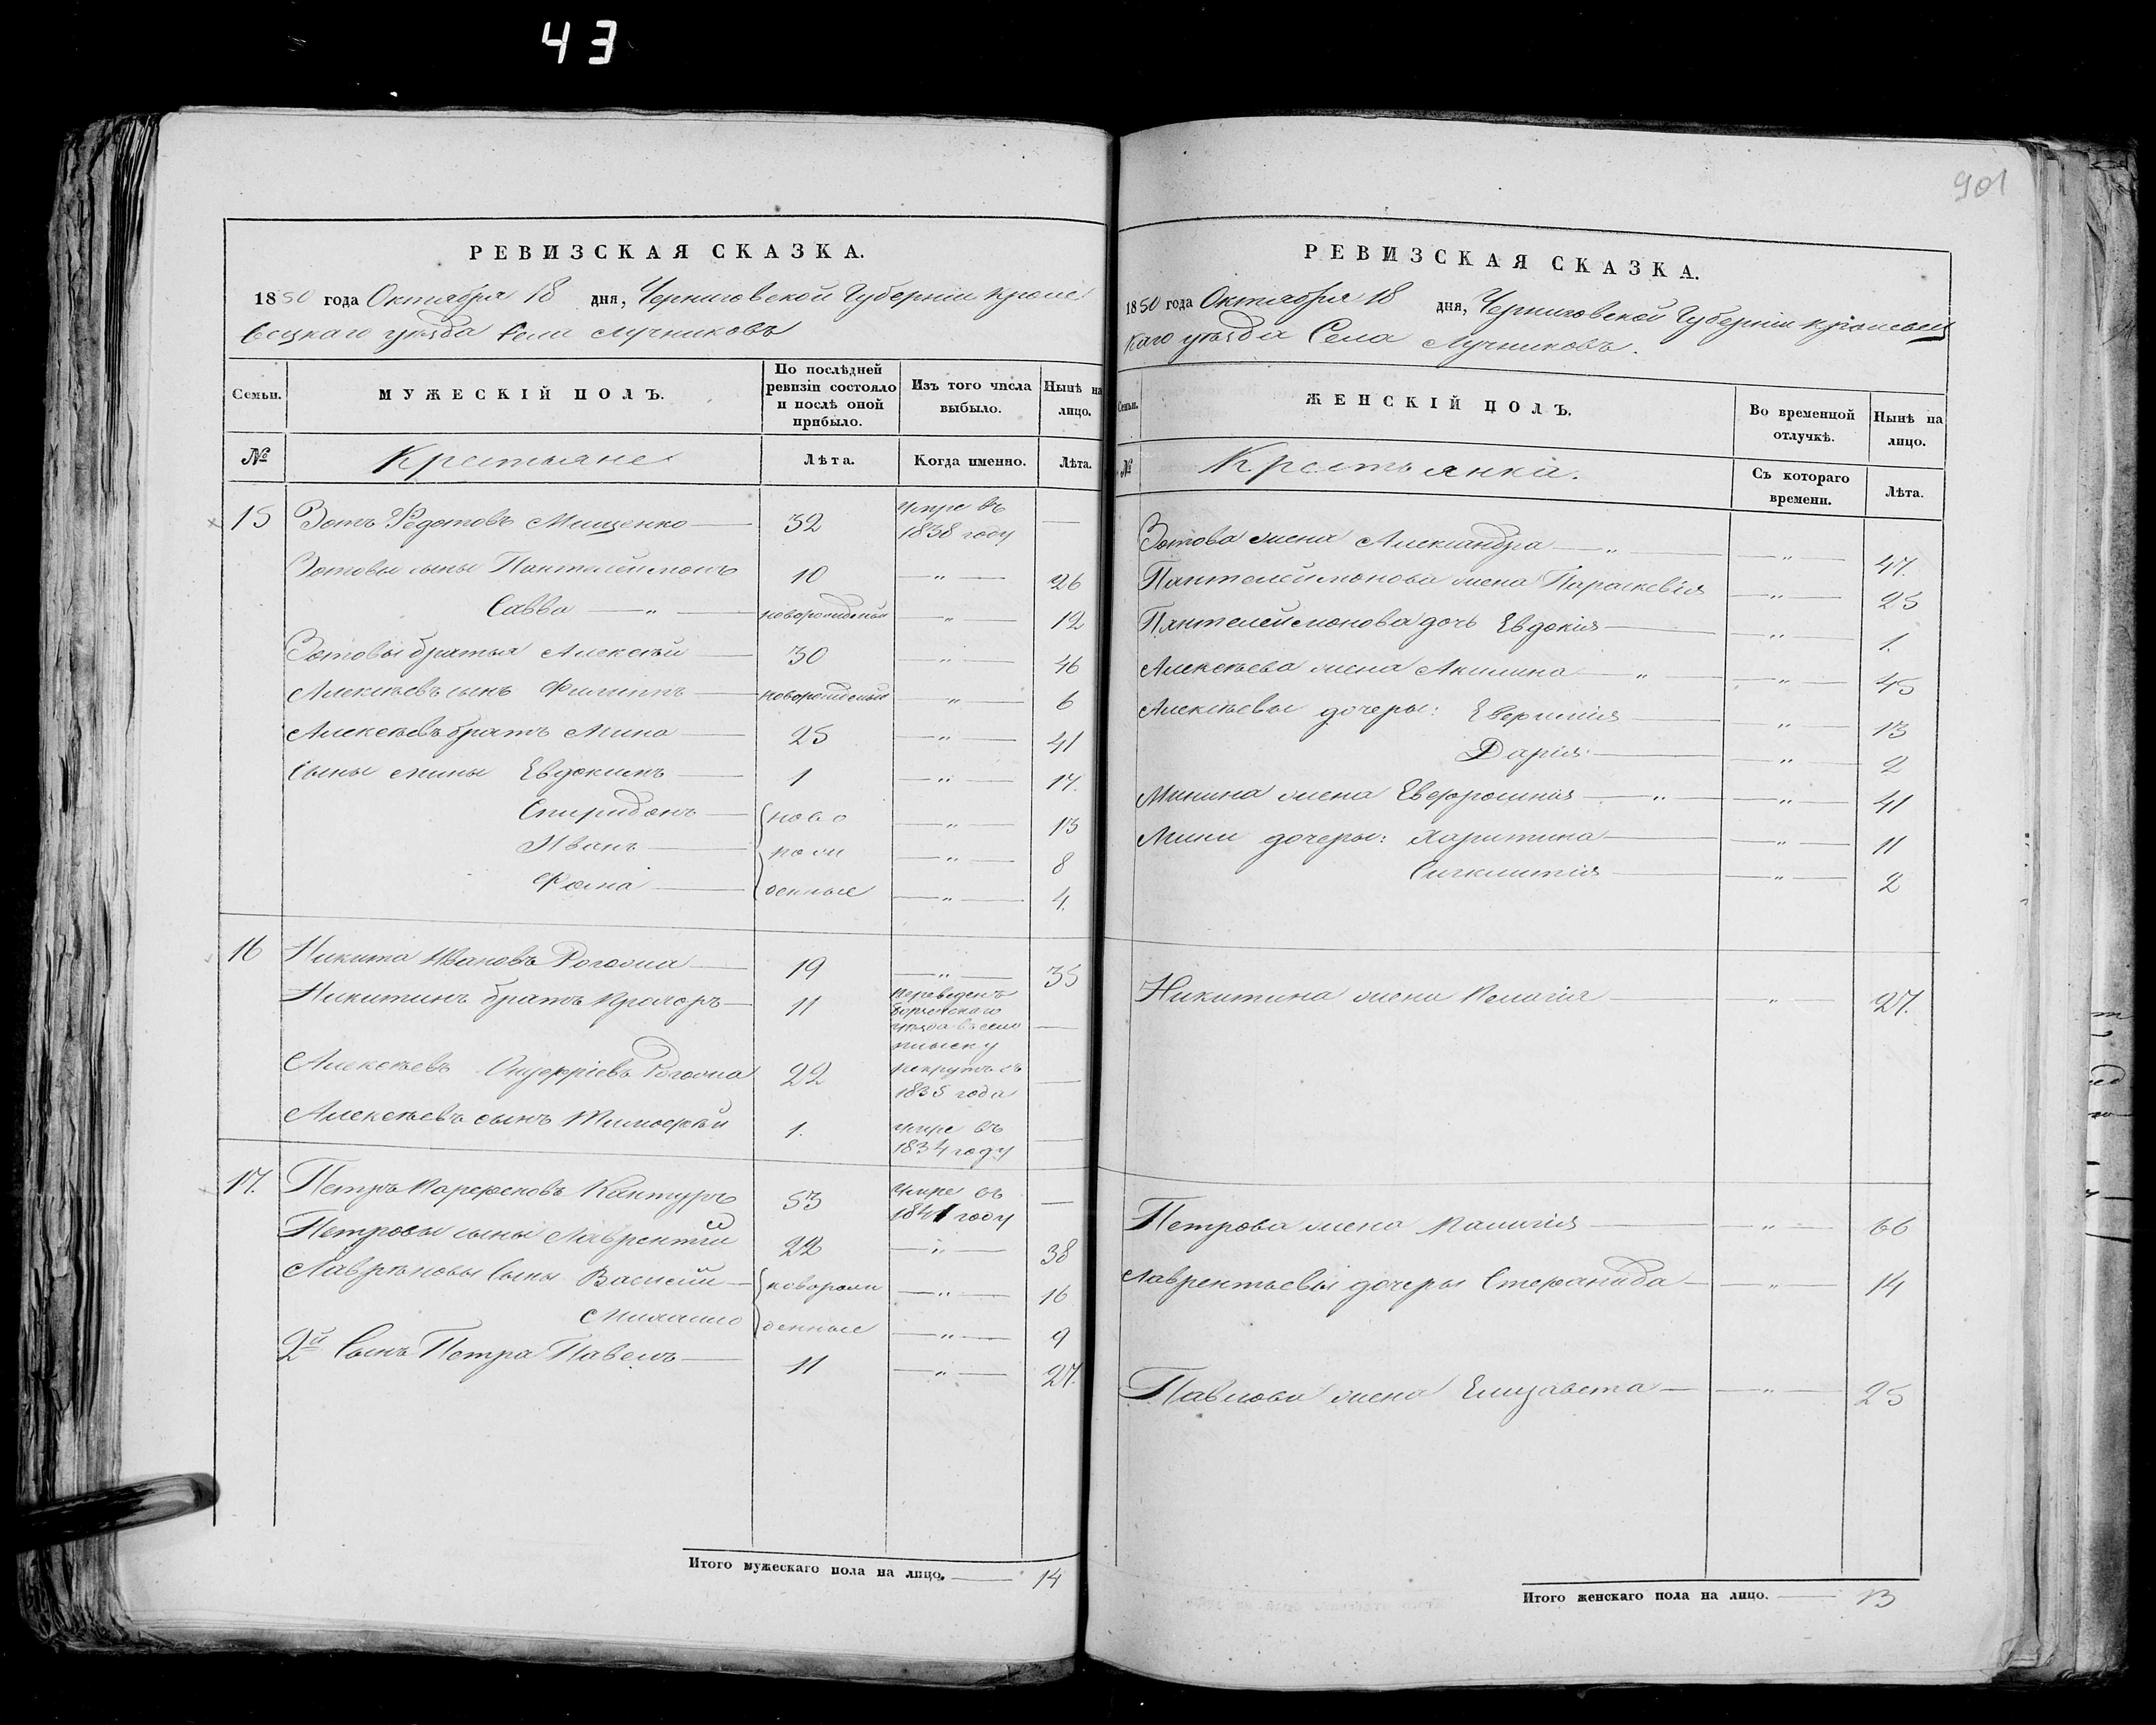 43
901
РЕВИЗСКАЯ СКАЗКА.
1850 года Октября 18 дня, Черниговской Губерніи Кроле
вецкаго уѣзда Села Лучниковъ
Семьи. МУЖЕСКІЙ ПОЛЪ. По послѣдней ревизіи состояло и послѣ оной прибыло. Изъ того числа выбыло. Нынѣ на лицо.
№ Крестьяне Лѣта. Когда именно. Лѣта.
15 Зотъ Федотовъ Мищенко — 32 умре въ 1838 году —
Зотовы сыны Пантелеймонъ 10 — „ — 26
Савва — „ — новорожденый — „ — 12
Зотовы братья Алексѣй — 30 — „ — 46
Алексѣевъ сынъ Филиппъ — новорожденый — „ — 6
Алексѣевъ братъ Мина — 25 — „ — 41
Сыны Мины Евдокимъ — 1 — „ — 17.
Спиридонъ — ново — „ — 13
Иванъ — рож — „ — 8
Фома — денные — „ — 4.
16 Никита Ивановъ Рогожа — 19 — „ — 35
Никитинъ братъ Прохоръ — 11 переведенъ
уѣзда въ село
—
Алексѣевъ Онуфріевъ Рогожа 22 рекрутъ съ 1835 года —
Алексѣевъ сынъ Тимофѣй 1. умре въ 1834 году —
17. Петръ Парфеновъ Кантуръ 53 умре въ 1841 году —
Петровы сыны Лаврентій 22 — „ — 38
Лавреновы Сыны Василій — новорож — „ — 16
денные — „ — 9
2й Сынъ Петра Павелъ — 11 — „ — 27.
Итого мужескаго пола на лицо. — 14
РЕВИЗСКАЯ СКАЗКА.
1850 года Октября 18 дня, Черниговской Губерніи Кролевец
каго уѣзда Села Лучниковъ.
Семьи. ЖЕНСКІЙ ПОЛЪ. Во временной отлучкѣ. Нынѣ на лицо.
№ Крестьянки. Съ котораго времени. Лѣта.
Зотова жена Александра — „ — — „ — 47.
Пантелеймонова жена Параскевія — „ — 25
Пантелеймонова дочь Евдокія — — „ — 1.
Алексѣева жена Акилина — „ — — „ — 45
Алексѣевы дочеры: — „ — 13
Дарія — — „ — 2
Минина жена Евфросинія — „ — — „ — 41
Мини дочеры: Харитина — — „ — 11
Синклитія — — „ — 2
Никитина жена Пелагія — „ — 27.
Петрова жена Палагія — — „ — 66
Лаврентьевы дочеры Стефанида — — „ — 14
Павлова жена Елизавета — — „ — 25
Итого женскаго пола на лицо. — 13